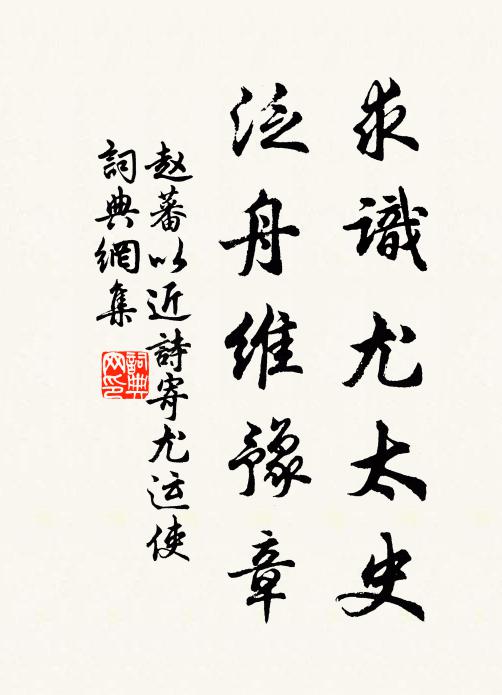 求識尤太史
泛舟維豫章
赵蕃以近詩寄尤运使
詞典網集
詞典网印